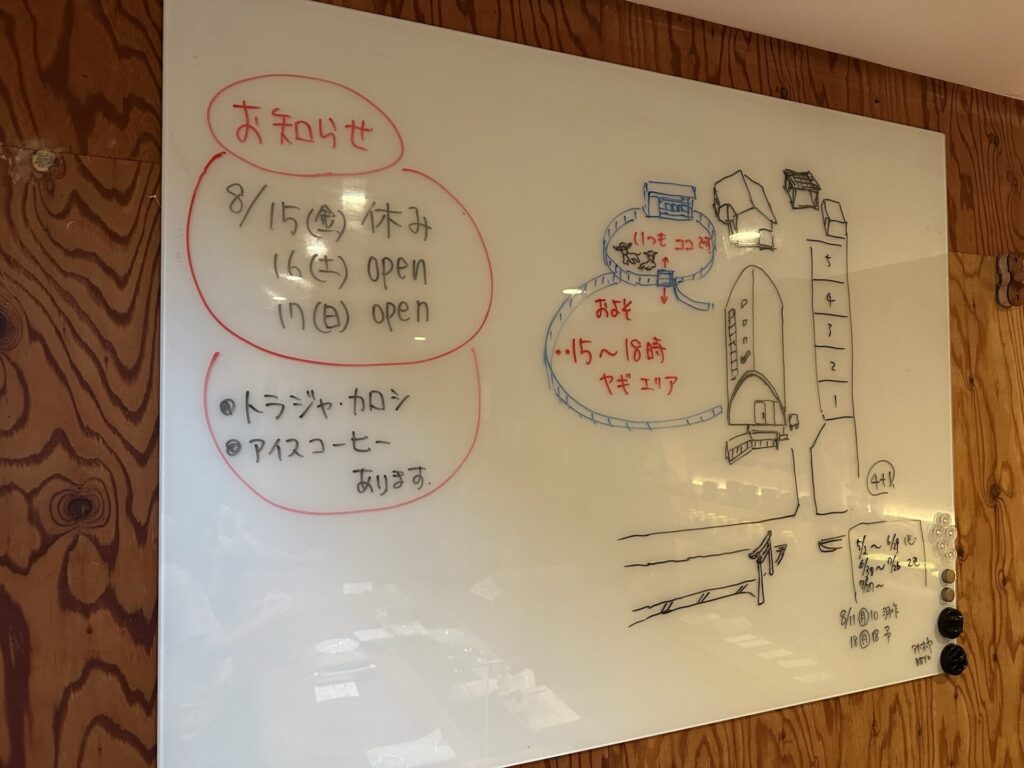 お知らせ
8/15(金) 休み
16(土) open
17(日) open
トラジャ・カロシ
アイスコーヒー
あります.
いつも ココです
およそ
15〜18時
ヤギエリア
5
4
3
2
1
8/11(月)10
18(月)